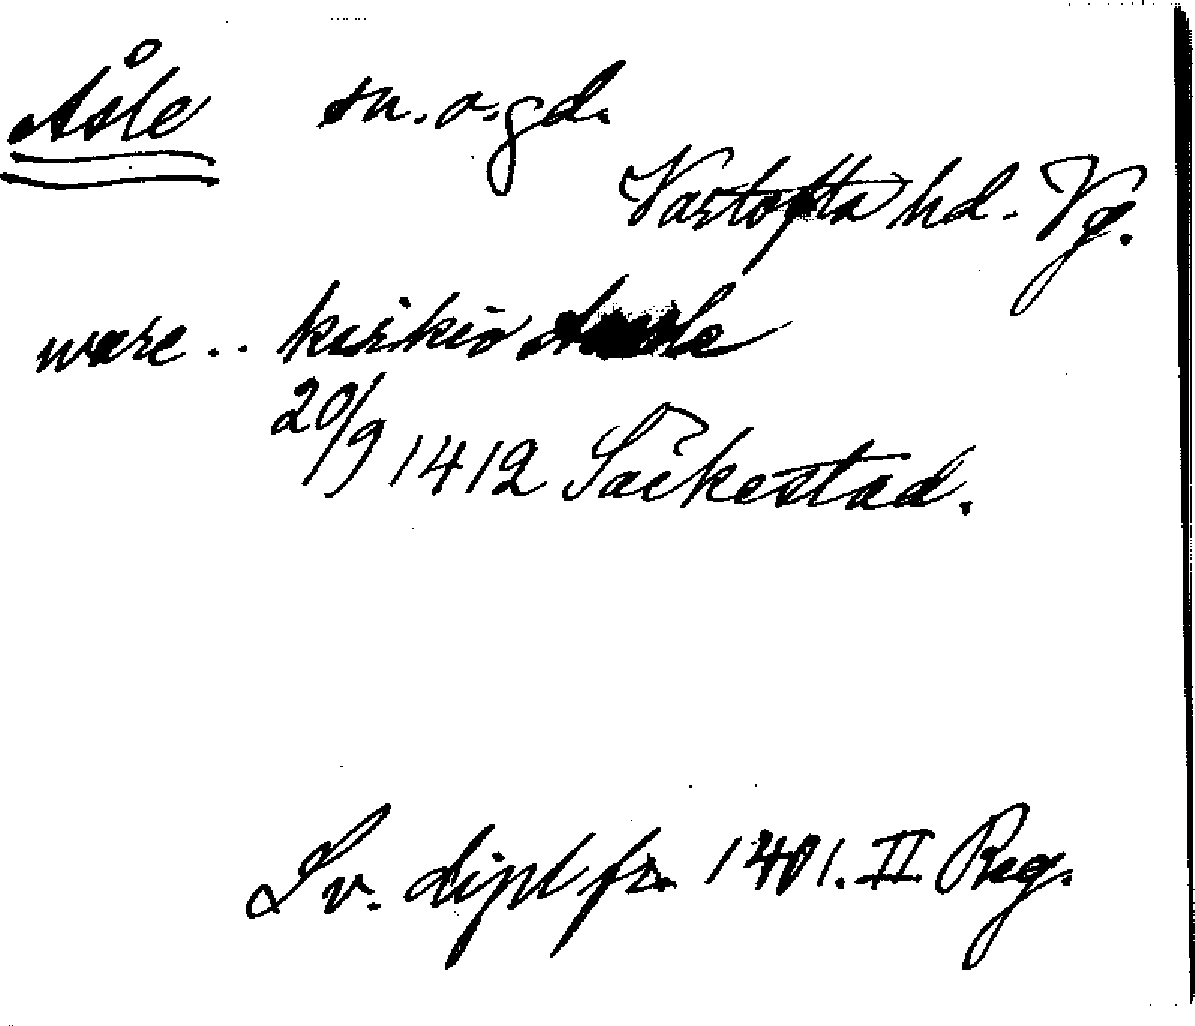 Åsle sn. o. gd.
Vartofta hd. Vg.
ware .. kirkio
20/9 1412 Säckestad.
Sv. dipl fr. 1401. II Reg.